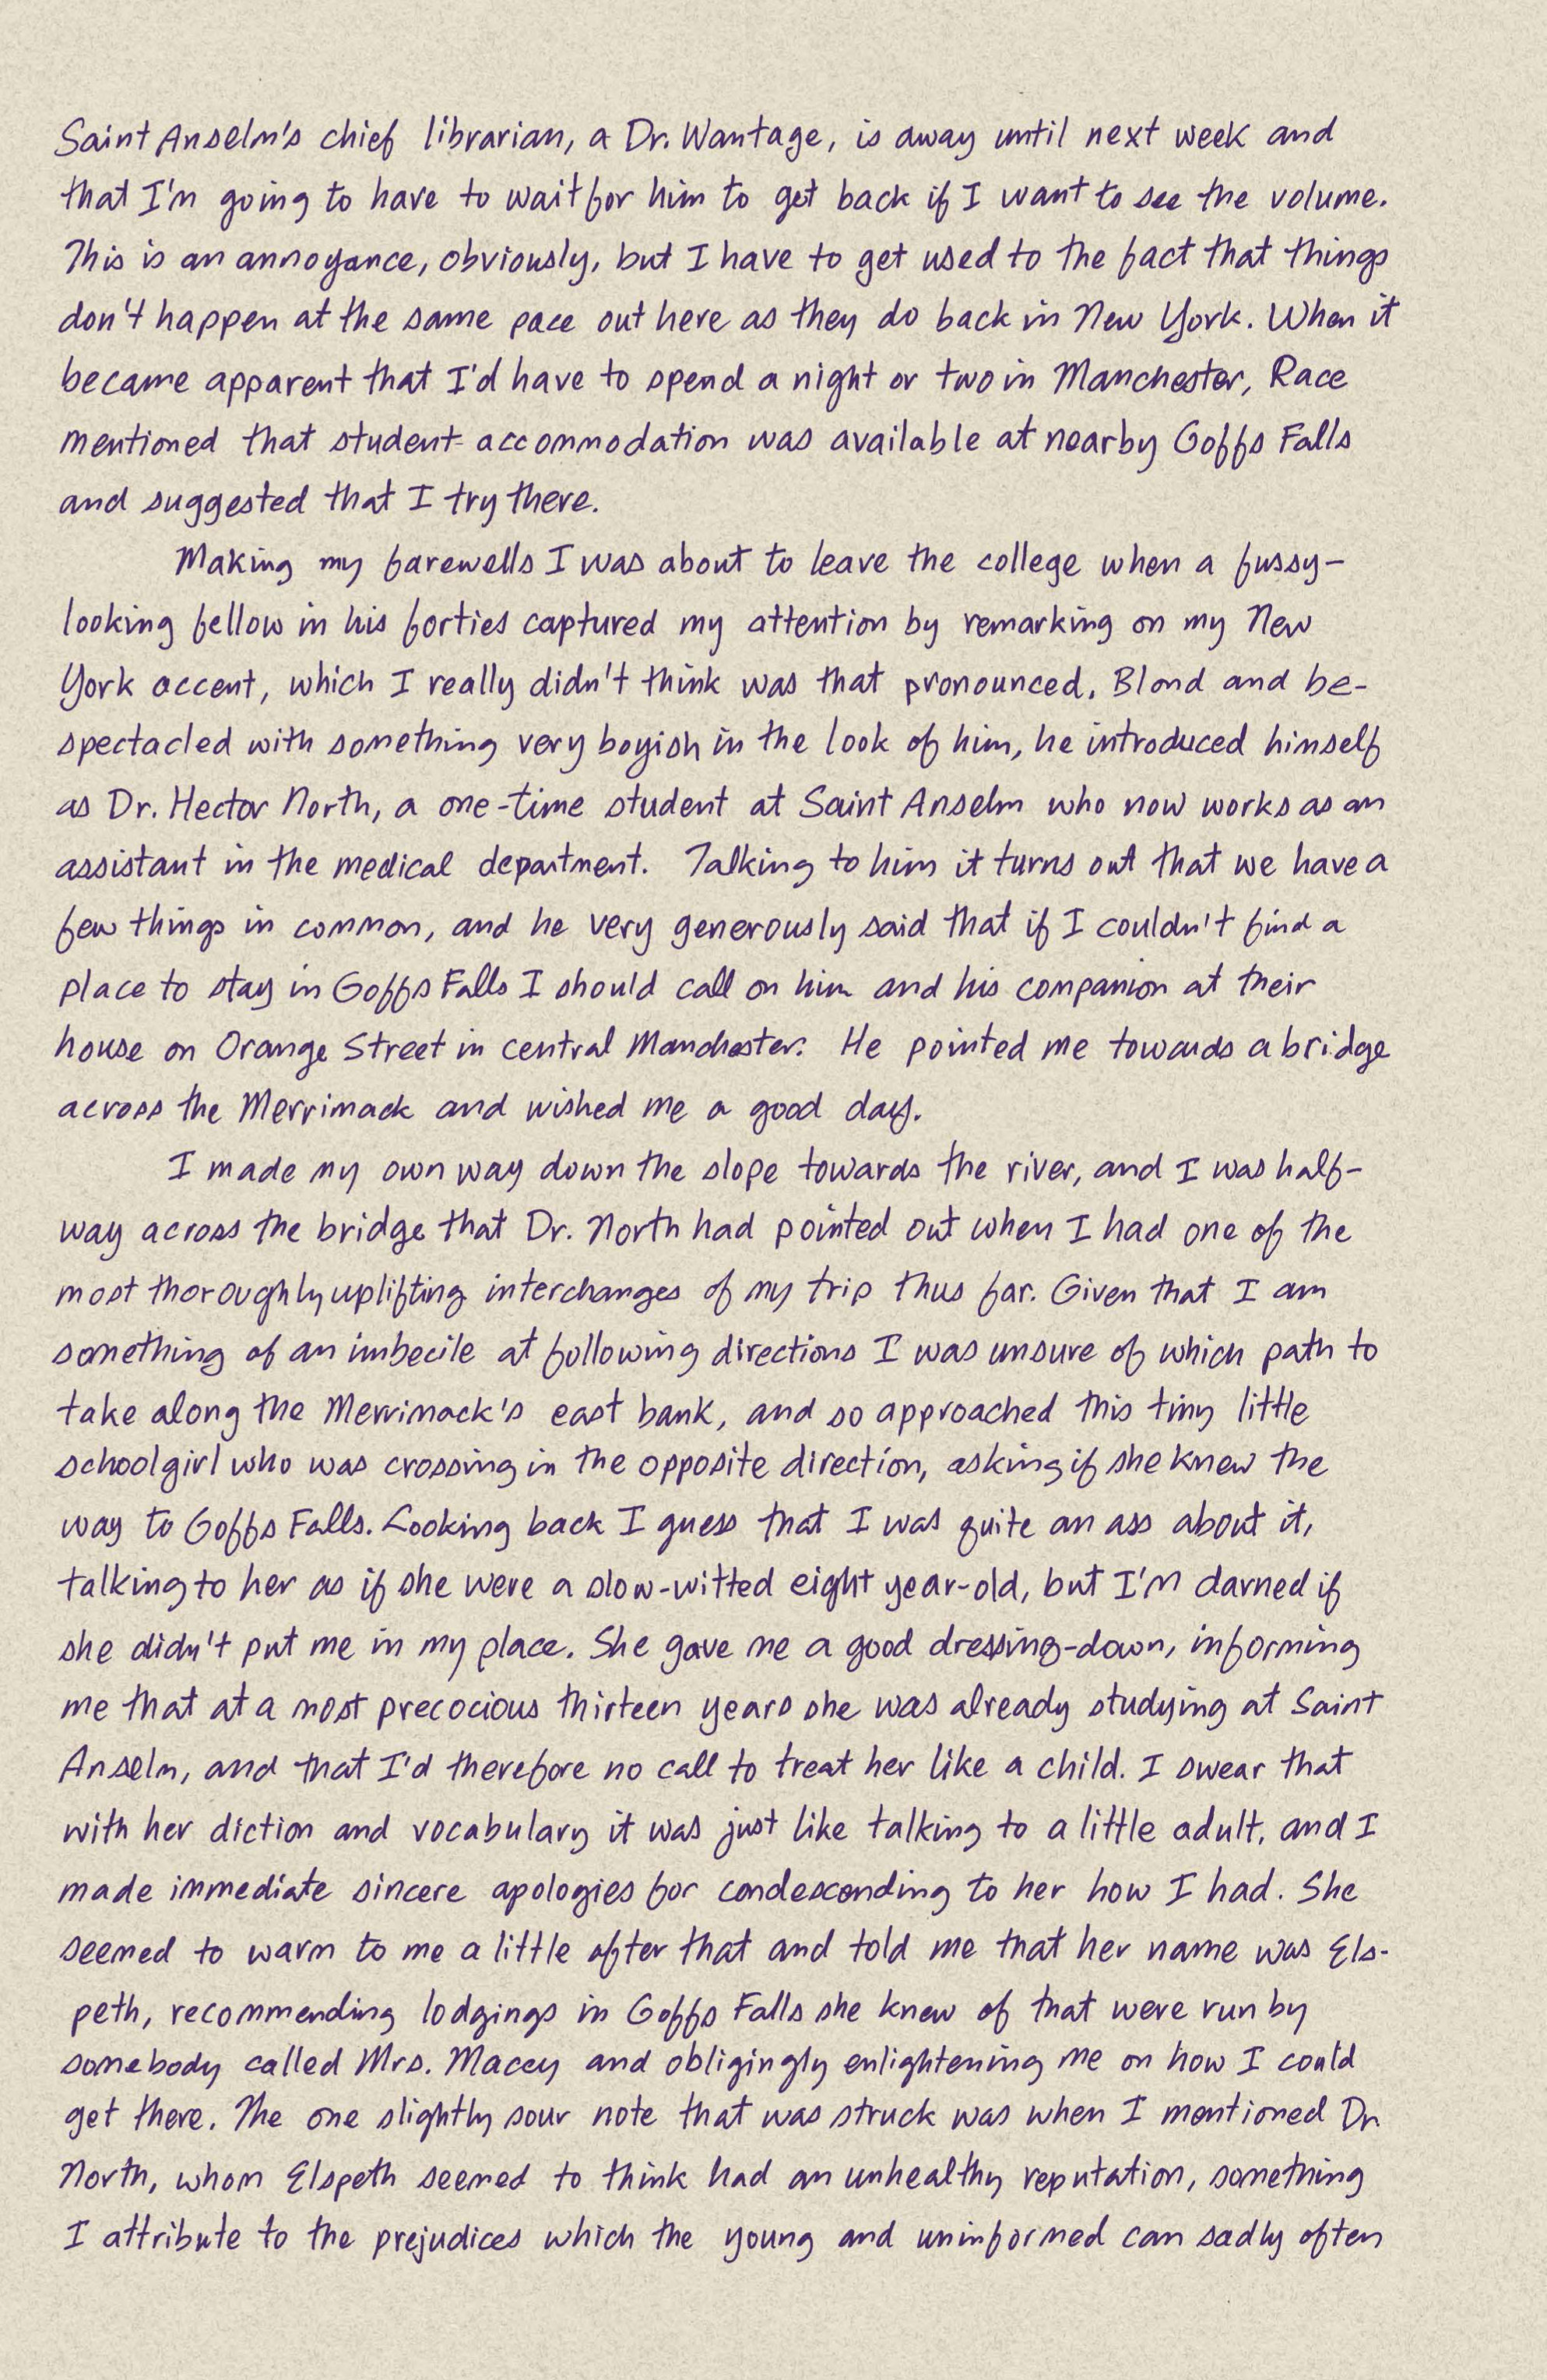 Saint Anselm's chief librarian, a Dr. Wantage, is away until next week and
that I'm going to have to wait for him to get back if I want to see the volume.
This is an annoyance, obviously, but I have to get used to the fact that things
don't happen at the same pace out here as they do back in New York. When it
became apparent that I'd have to spend a night or two in Manchester, Race
mentioned that student accommodation was available at nearby Goffs Falls
and suggested that I try there.
Making my farewells I was about to leave the college when a fussy-
looking fellow in his forties captured my attention by remarking on my New
York accent, which I really didn't think was that pronounced. Blond and be-
spectacled with something very boyish in the look of him, he introduced himself
as Dr. Hector North, a one-time student at Saint Anselm who now works as an
assistant in the medical department. Talking to him it turns out that we have a
few things in common, and he very generously said that if I couldn't find a
place to stay in Goffs Falls I should call on him and his companion at their
house on Orange Street in central Manchester. He pointed me towards a bridge
across the Merrimack and wished me a good day.
I made my own way down the slope towards the river, and I was half-
way across the bridge that Dr. North had pointed out when I had one of the
most thoroughly uplifting interchanges of my trip thus far. Given that I am
something of an imbecile at following directions I was unsure of which path to
take along the Merrimack's east bank, and so approached this tiny little
schoolgirl who was crossing in the opposite direction, asking if she knew the
way to Goffs Falls. Looking back I guess that I was quite an ass about it,
talking to her as if she were a slow-witted eight year-old, but I'm darned if
she didn't put me in my place. She gave me a good dressing-down, informing
me that at a most precocious thirteen years she was already studying at Saint
Anselm, and that I'd therefore no call to treat her like a child. I swear that
with her diction and vocabulary it was just like talking to a little adult, and I
made immediate sincere apologies for condescending to her how I had. She
seemed to warm to me a little after that and told me that her name was Els-
peth, recommending lodgings in Goffs Falls she knew of that were run by
somebody called Mrs. Macey and obligingly enlightening me on how I could
get there. The one slightly sour note that was struck was when I mentioned Dr.
North, whom Elspeth seemed to think had an unhealthy reputation, something
I attribute to the prejudices which the young and uninformed can sadly often